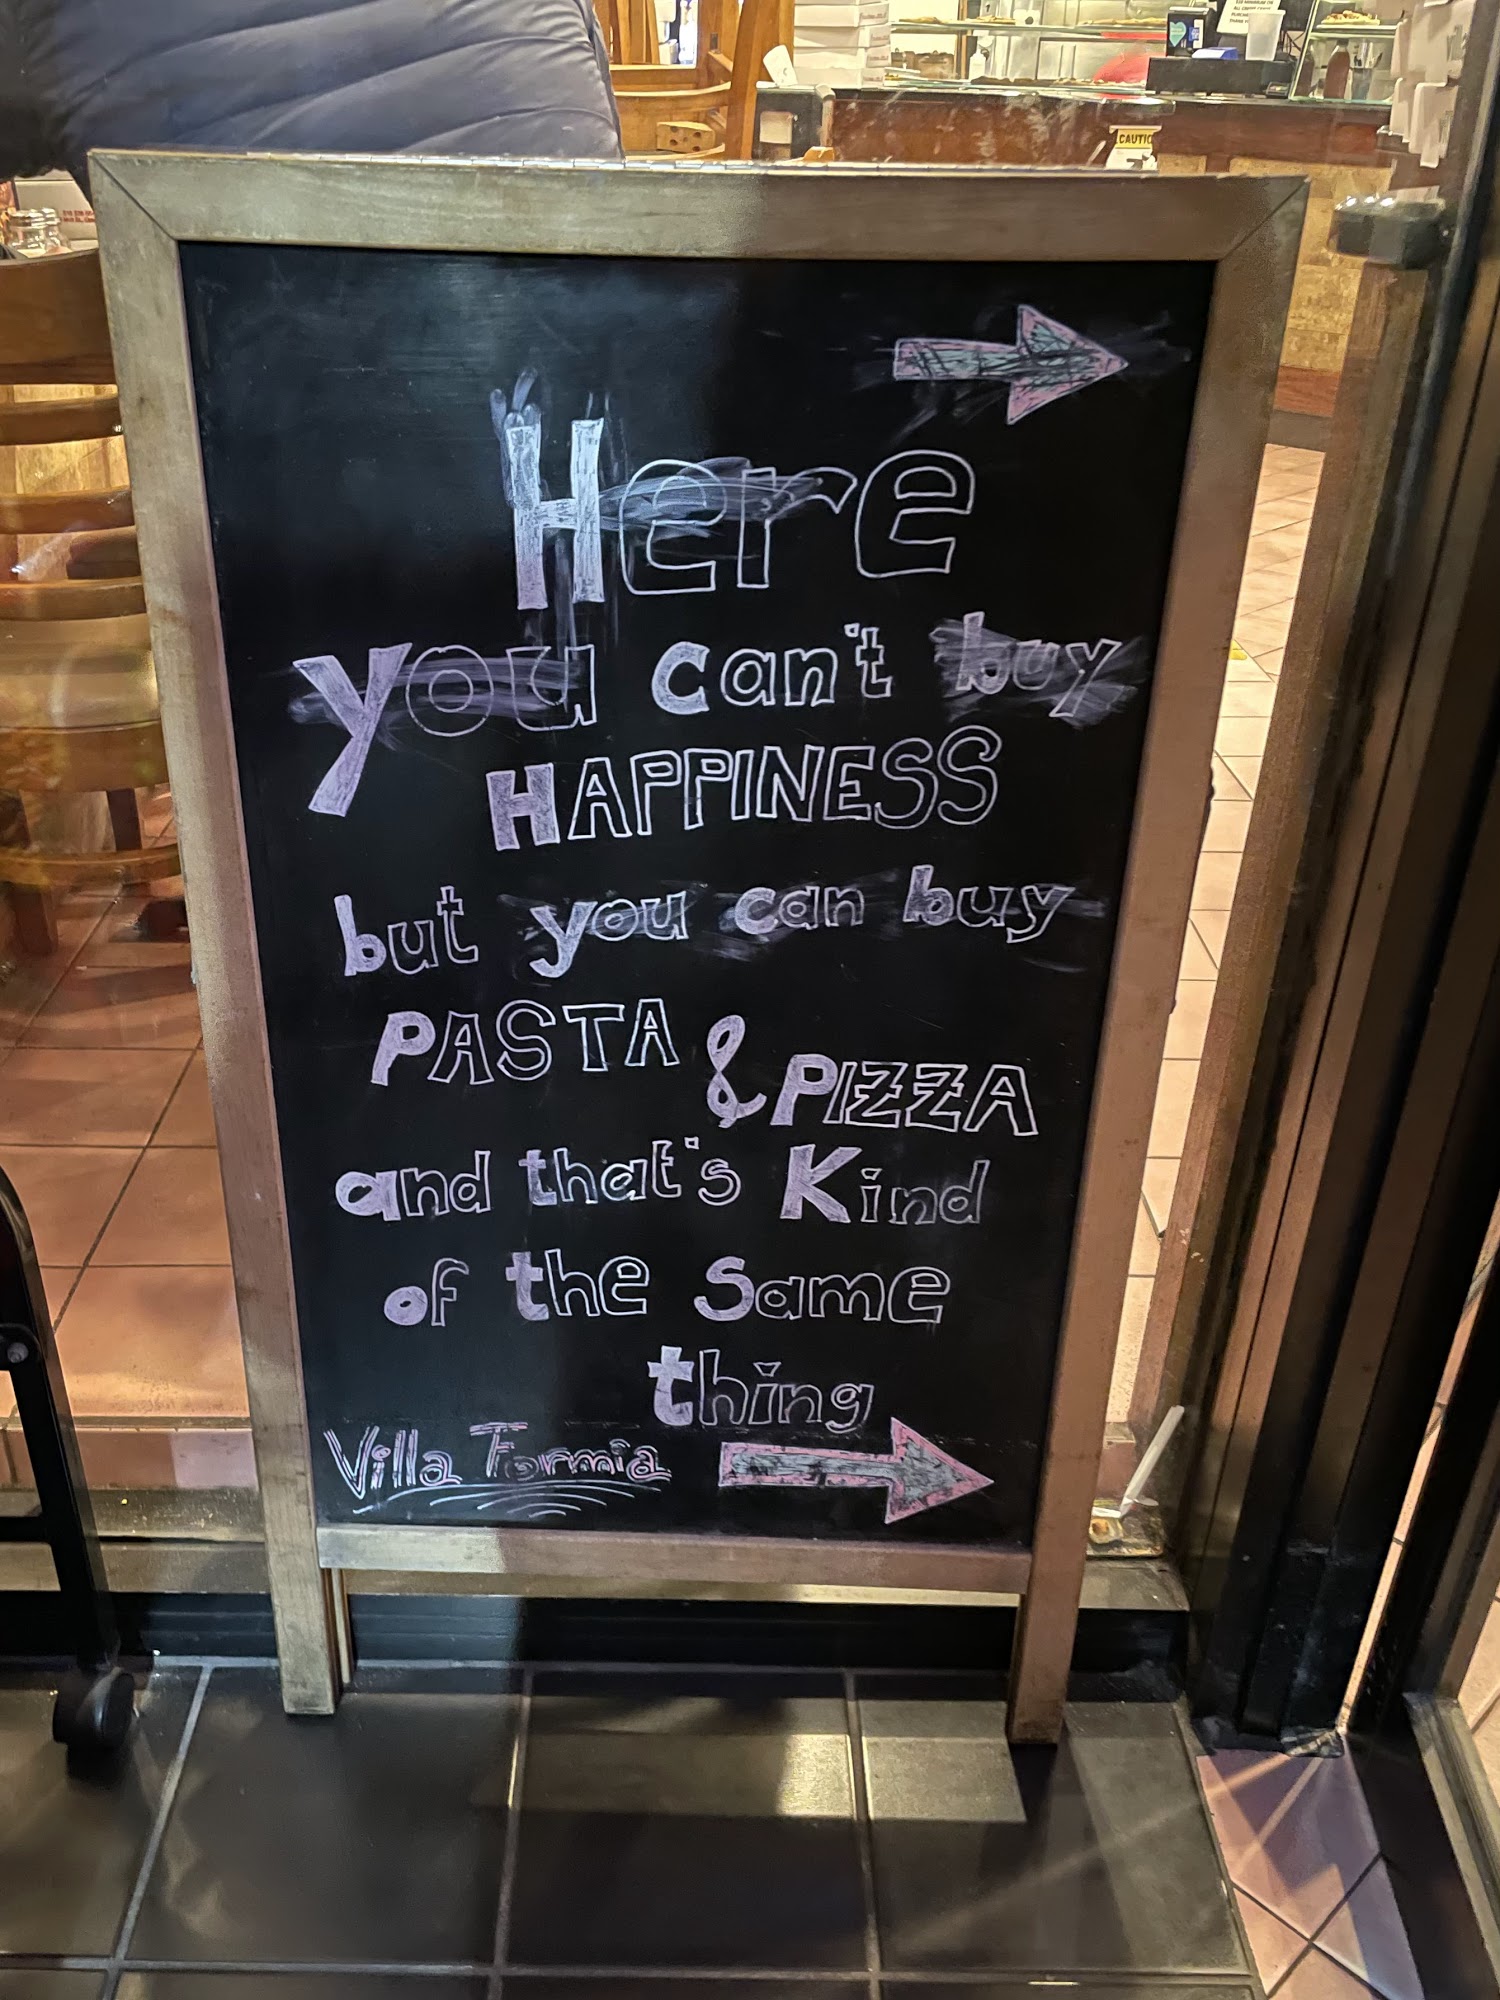 CAUTIO
Here
you can't buy
HAPPINESS
but you can buy
PASTA & PIZZA
and that's Kind
of the same
thing
Villa Formia